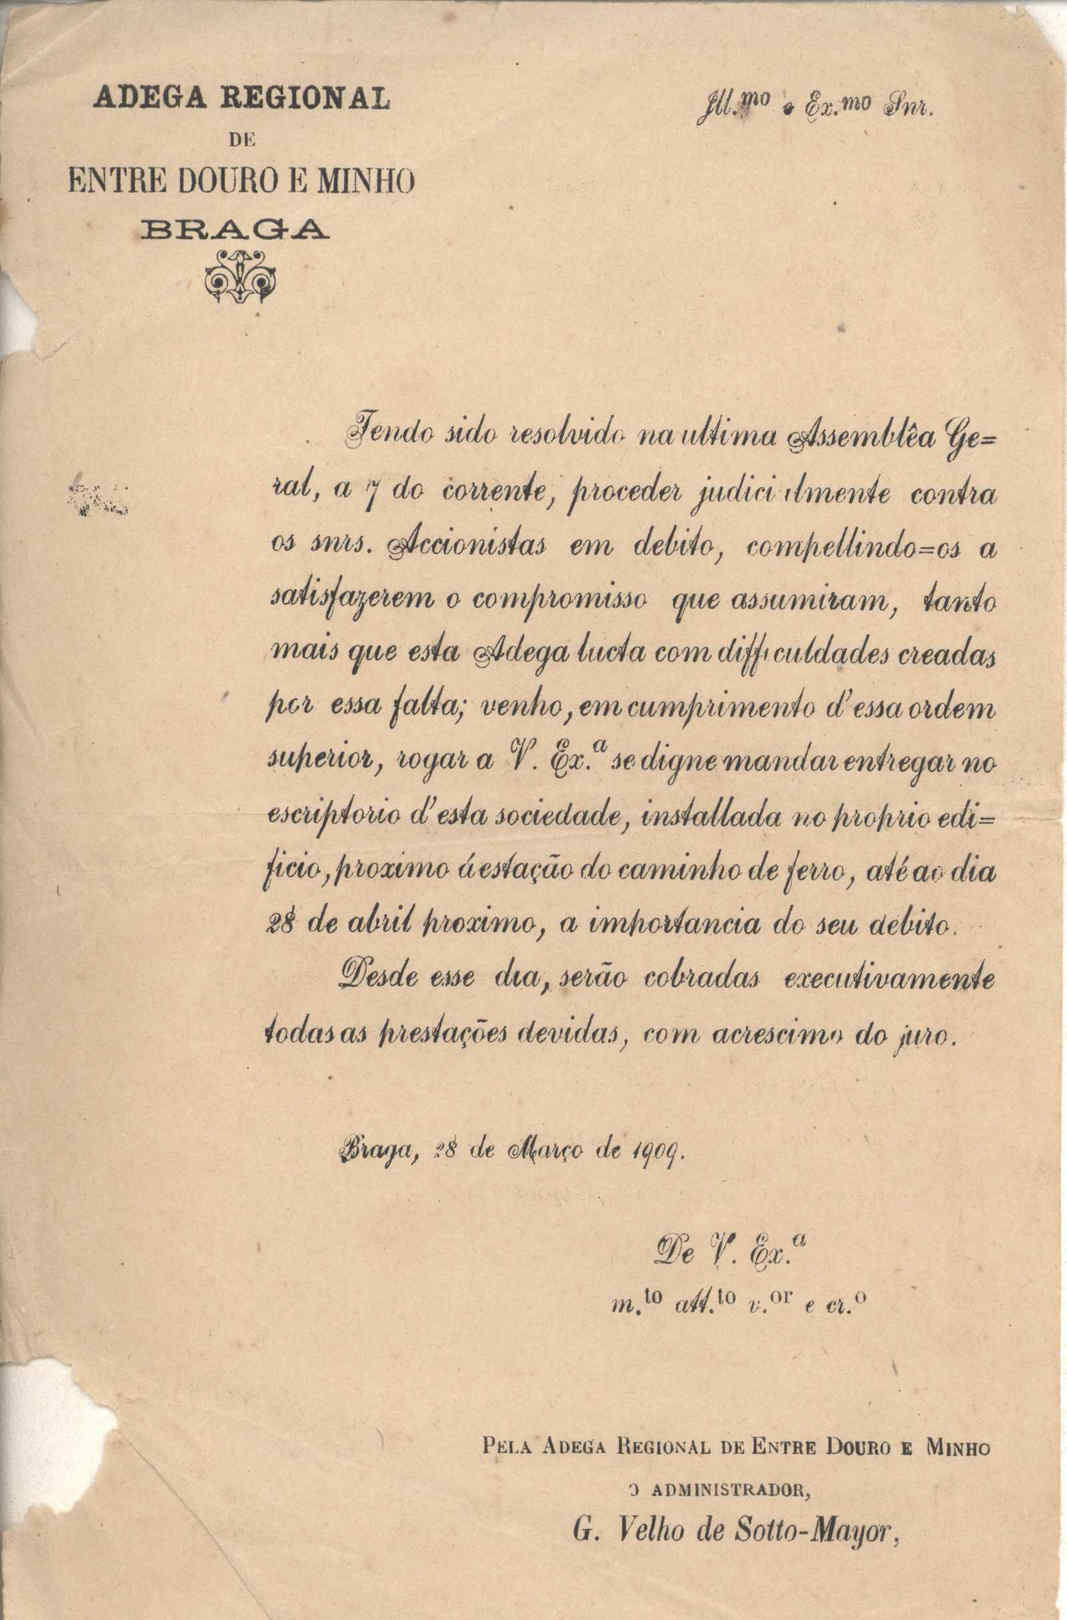 ADEGA REGIONAL
DE
ENTRE DOURO E MINHO
BRAGA
Ill.mo e Ex.mo Snr.
Tendo sido resolvido na ultima Assemblêa Ge=
ral, a 7 do corrente, proceder judicialmente contra
os snrs. Accionistas em debito, compellindo=os a
satisfazerem o compromisso que assumiram, tanto
mais que esta Adega lucta com difficuldades creadas
por essa falta; venho, em cumprimento d'essa ordem
superior, rogar a V. Ex.a se digne mandar entregar no
escriptorio d'esta sociedade, installada no proprio edi=
ficio, proximo á estação do caminho de ferro, até ao dia
28 de abril proximo, a importancia do seu debito.
Desde esse dia, serão cobradas executivamente
todas as prestações devidas, com acrescimo do juro.
Braga, 28 de Março de 1909.
De V. Ex.a
m.to att.to v.or e cr.o
PELA ADEGA REGIONAL DE ENTRE DOURO E MINHO
O ADMINISTRADOR,
G. Velho de Sotto-Mayor,